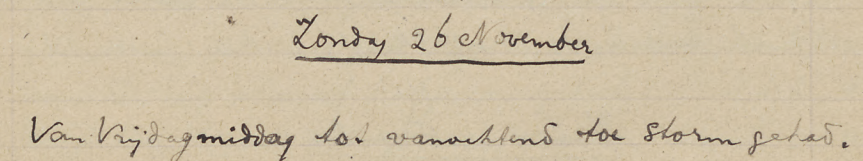 Zondag 26 November
Van Vrijdagmiddag tot vanochtend toe storm gehad.